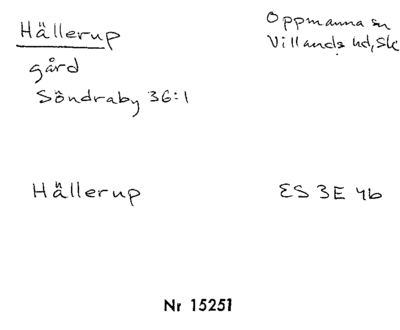 Hällerup
Oppmanna sn
Villands hd, Sk
gård
Söndraby 36:1
Hällerup
ES 3E 4b
Nr 15251